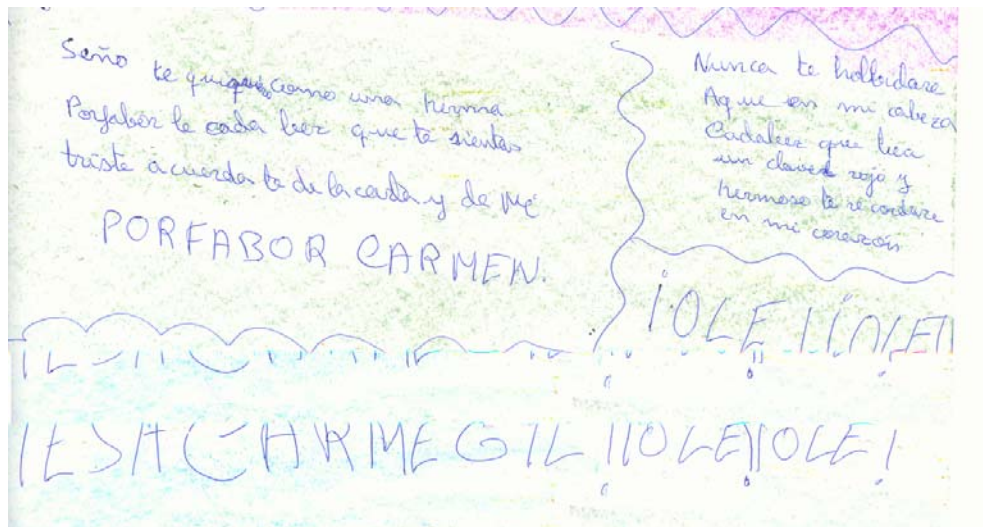 Seño te quiero como una herma
Porfabor le cada bez que te sientas
triste acuerda te de la carda y de Me
PORFABOR CARMEN.
Nunca te hollbidare
Aque en mi cabeza
Cadabez que bea
un clavel rojo y
hermoso te recordare
en mi corazón
¡OLE
¡ESA CARME GIL ¡¡OLE¡¡OLE!